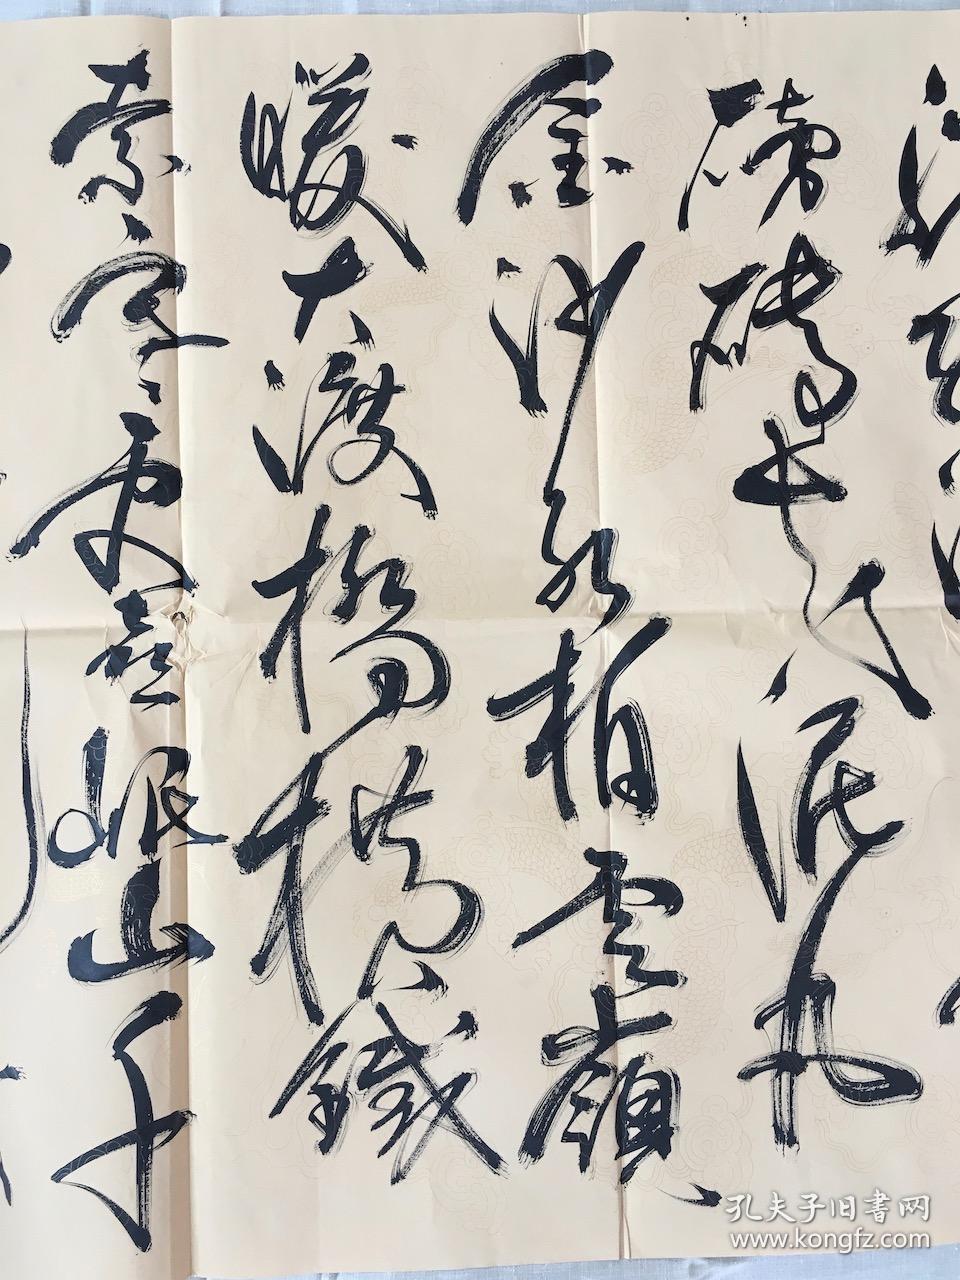 磅礴走泥丸
金沙水拍雲嶺
暖大渡橋橫鐵
索寒更喜岷山千
孔夫子旧書网
www.kongfz.com